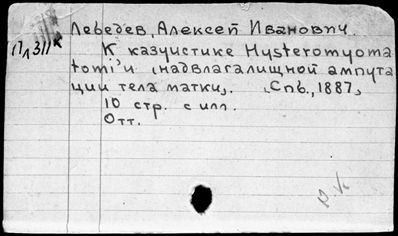 Лебедев, Алексей Иванович.
Пл311к
К казуистике Hysteromyoma
tomi'и (надвлагалищной ампута
ции тела матки). Спб., 1887,
10 стр. с илл.
Отт.